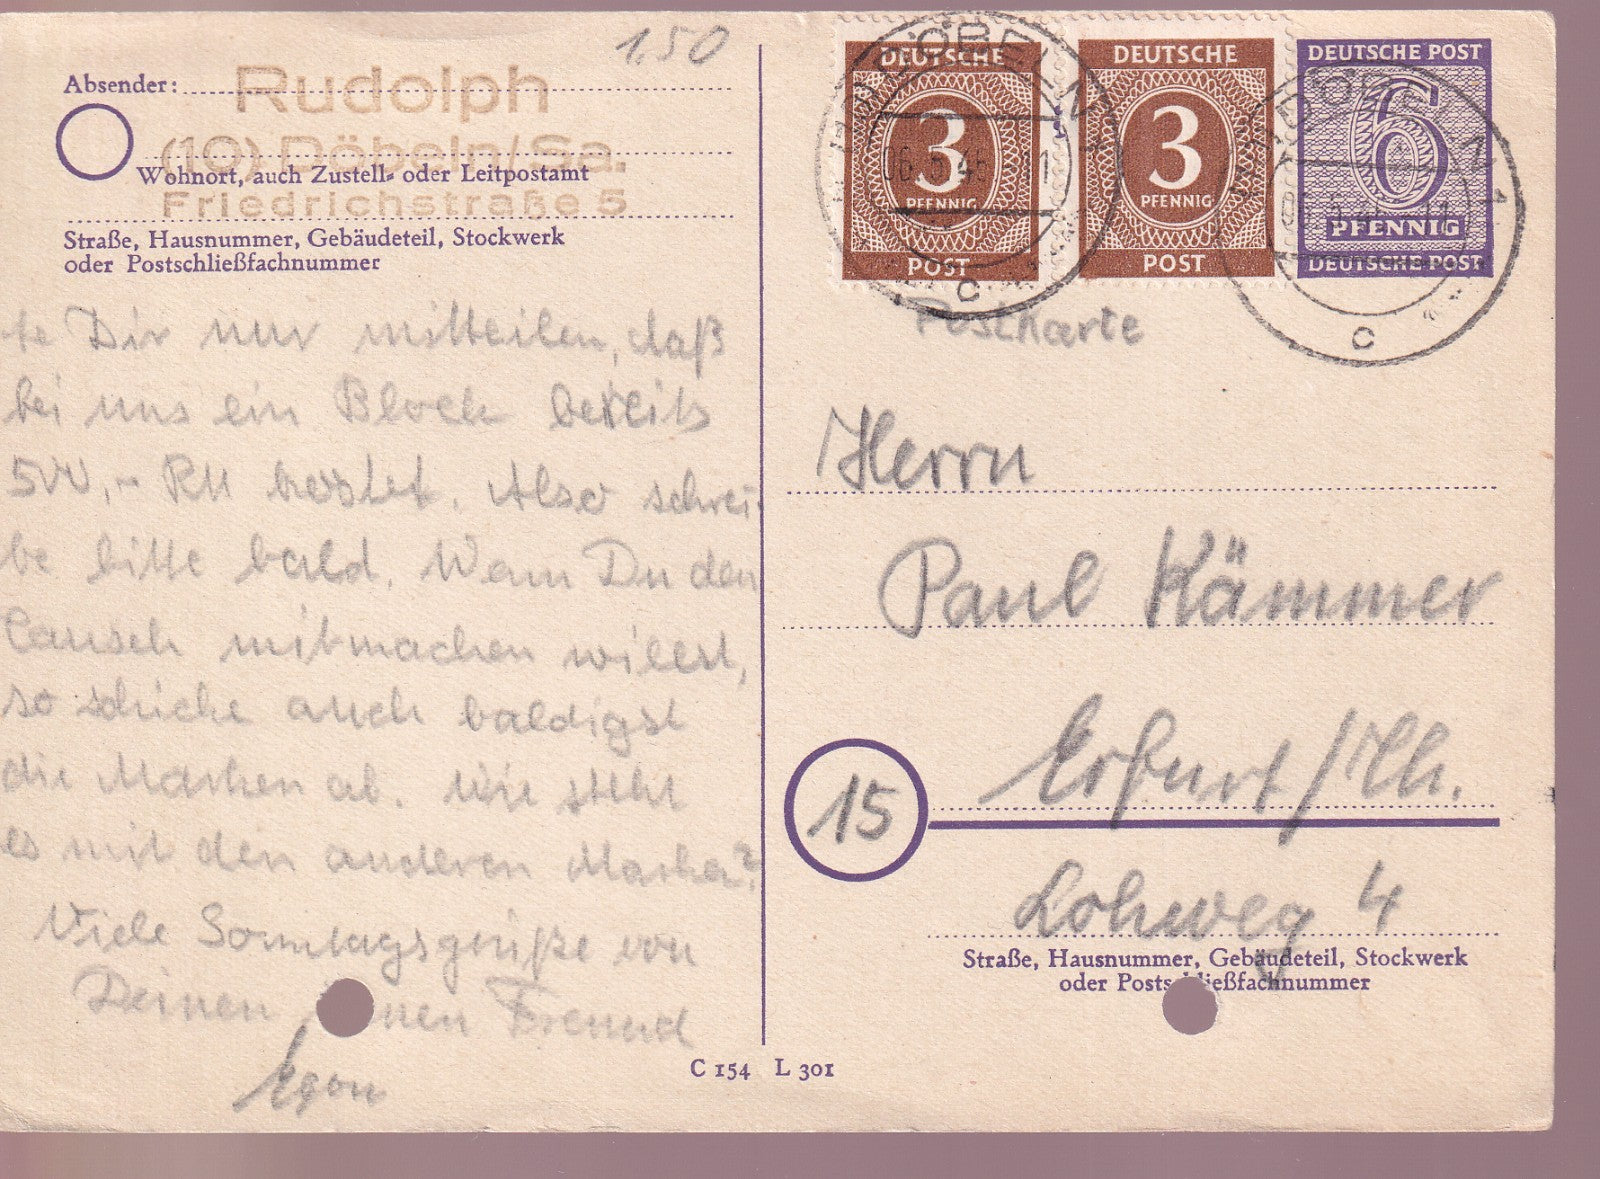 1.50
Absender:
Rudolph
(10) Döbeln/Sa.
Wohnort, auch Zustell- oder Leitpostamt
Friedrichstraße 5
Straße, Hausnummer, Gebäudeteil, Stockwerk
oder Postschließfachnummer
te Dir nur mitteilen, daß
bei uns ein Block bereits
500,- RM kostet. Also schrei-
be bitte bald. Wenn Du den
Tausch mitmachen willst,
so schicke auch baldigst
die Marken ab. Wie steht
es mit den anderen Marken?
Viele Sonntagsgrüße von
Deinen nen Freund
Egon
DEUTSCHE
3
PFENNIG
POST
DEUTSCHE
3
PFENNIG
POST
DEUTSCHE POST
6
PFENNIG
DEUTSCHE POST
DÖBELN
c
DÖBELN 1
c
Postkarte
Herrn
Paul Kämmer
15
Erfurt/Th.
Lohweg 4
Straße, Hausnummer, Gebäudeteil, Stockwerk
oder Postschließfachnummer
C 154 L 301